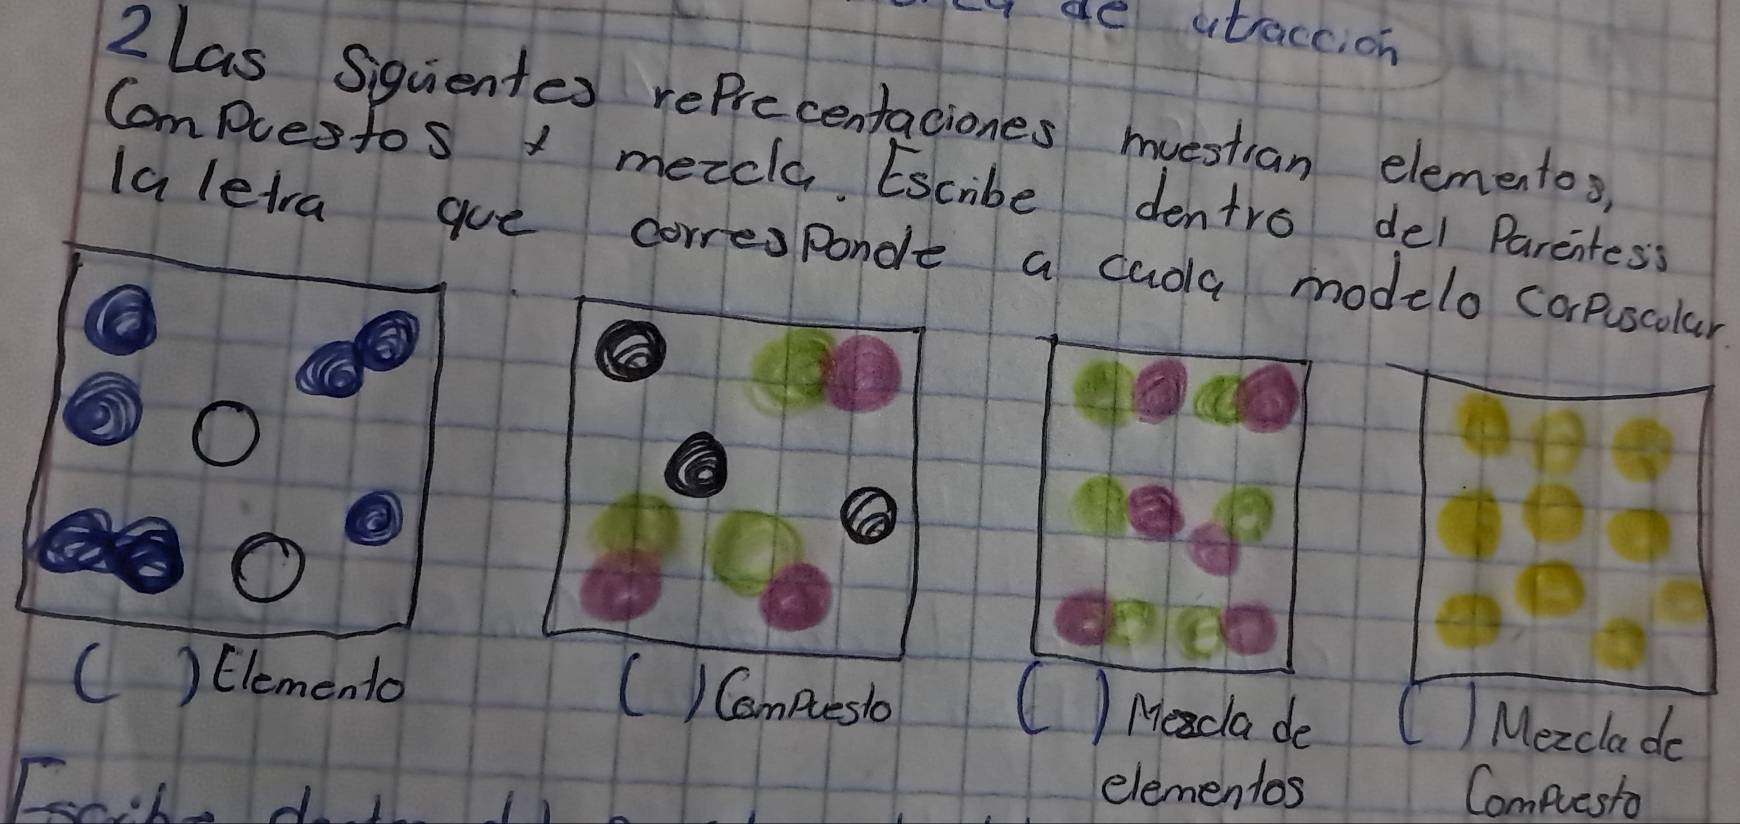 de atracción
2 Las Siguientes reprecentaciones muestran elementos,
Compuestos y mezcla. Escribe dentro del Parentesis
la letra que corresponde a cada modelo corpuscolar.
( ) Elemento
( ) Compuesto
( ) Mezcla de
elementos
( ) Mezcla de
Compuesto